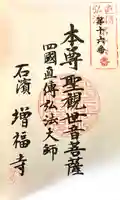 第十六番
本尊聖観世音菩薩
四國直傳弘法大師
石濱 増福寺